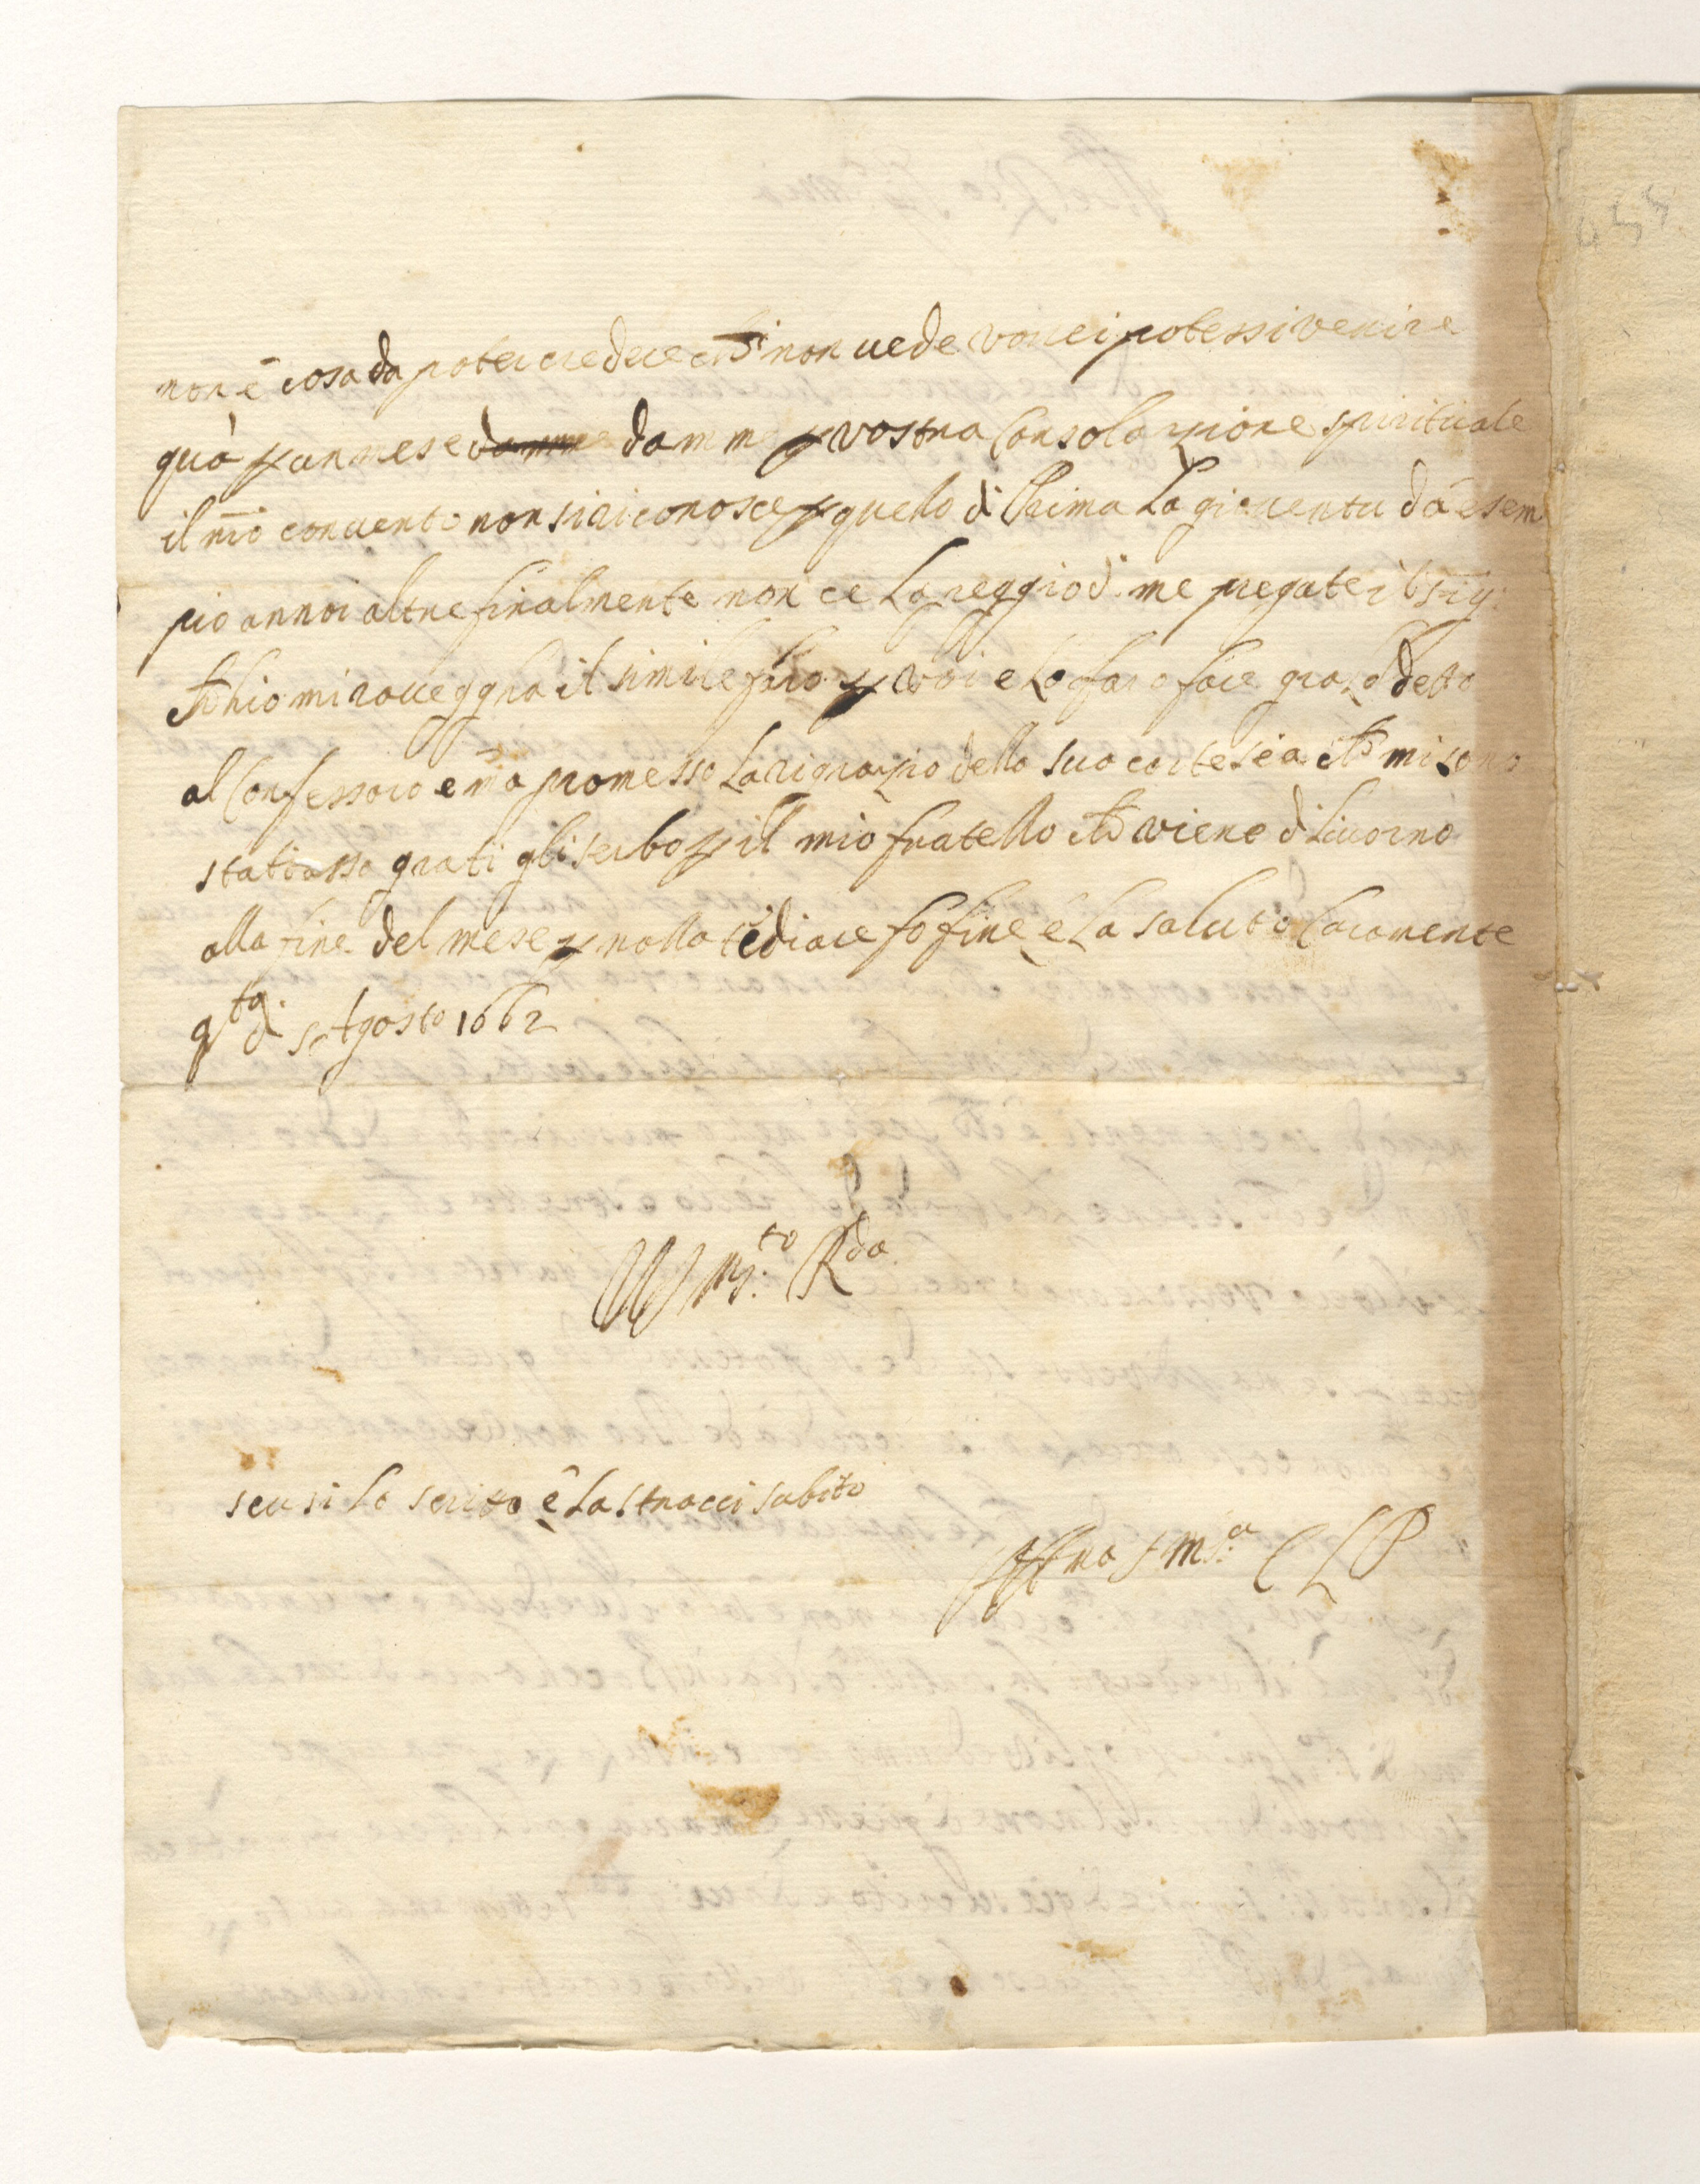 non è cosa da poter credere chi non vede vorrei potessi venire
quà p un mese da mme p vostra Consolazione spirituale
il mio convento non si riconosce p quello di Prima La gioventu dà esem
pio annoi altre finalmente non ce La peggio di me pregate il sig:
ch io mi ravegghia il simile farò p voi e Lo farò fare gia Lo detto
al Confessoro e ma promesso La rigrazio della sua cortesia che mi sono
stati asso grati gli serbo p il mio fratello che viene di Livorno
alla fine del mese p nolla tediare fo fine e La saluto Caramente
qto di 5 Agosto 1662
VS M.to R.da
scusi Lo scritto e La stracci subito
Aff.ma s m.a C L P
455